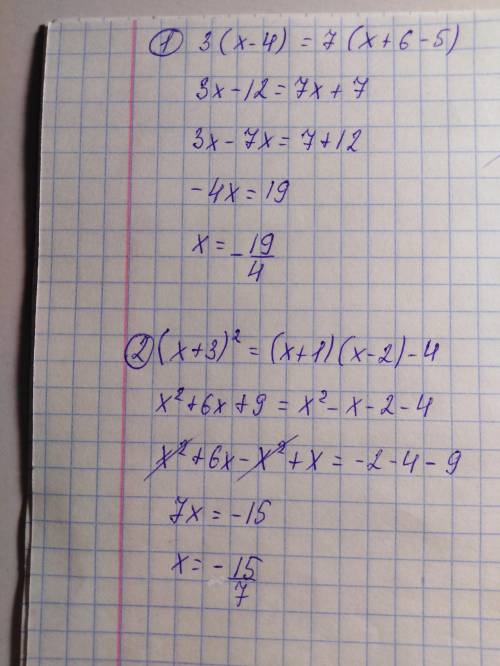 ① 3(x-4) = 7(x+6-5)
3x-12=7x+7
3x-7x=7+12
-4x=19
x=-19/4
② (x+3)² = (x+1)(x-2)-4
x²+6x+9=x²-x-2-4
x²+6x-x²+x=-2-4-9
7x=-15
x=-15/7